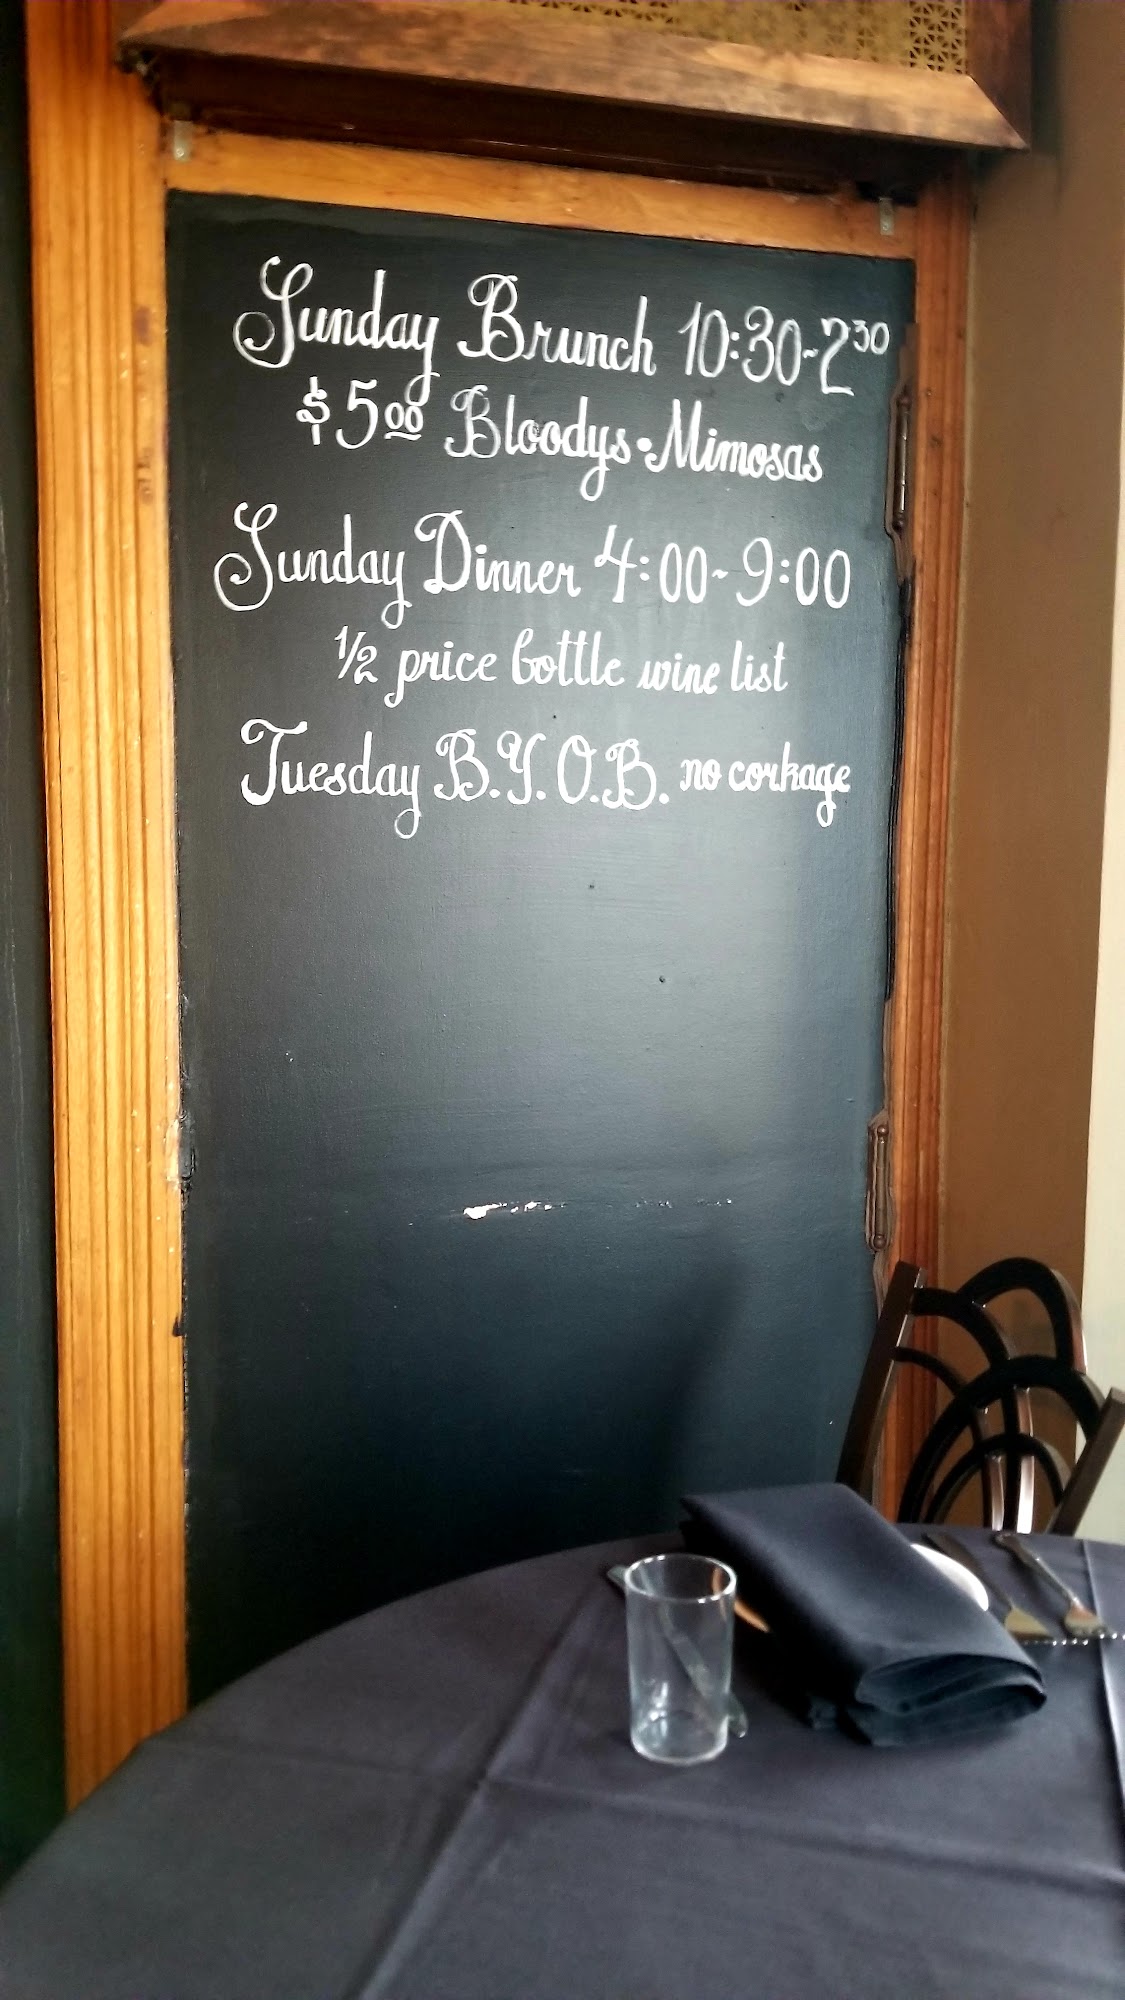 Sunday Brunch 10:30-2 30
$5 00 Bloodys • Mimosas
Sunday Dinner 4:00-9:00
1/2 price bottle wine list
Tuesday B.Y.O.B. no corkage